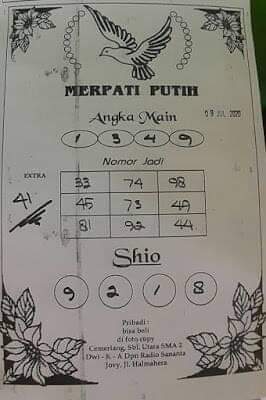 MERPATI PUTIH
Angka Main
09 JUL 2020
1 3 4 9
Nomor Jadi
EXTRA
33 74 98
41
45 73 49
81 92 44
Shio
9 2 1 8
Pribadi :
bisa beli
di foto copy
Cemerlang, Sbl. Utara SMA 2
Dwi - K - A Dpn Radio Sananta
Jovy, Jl. Halmahera